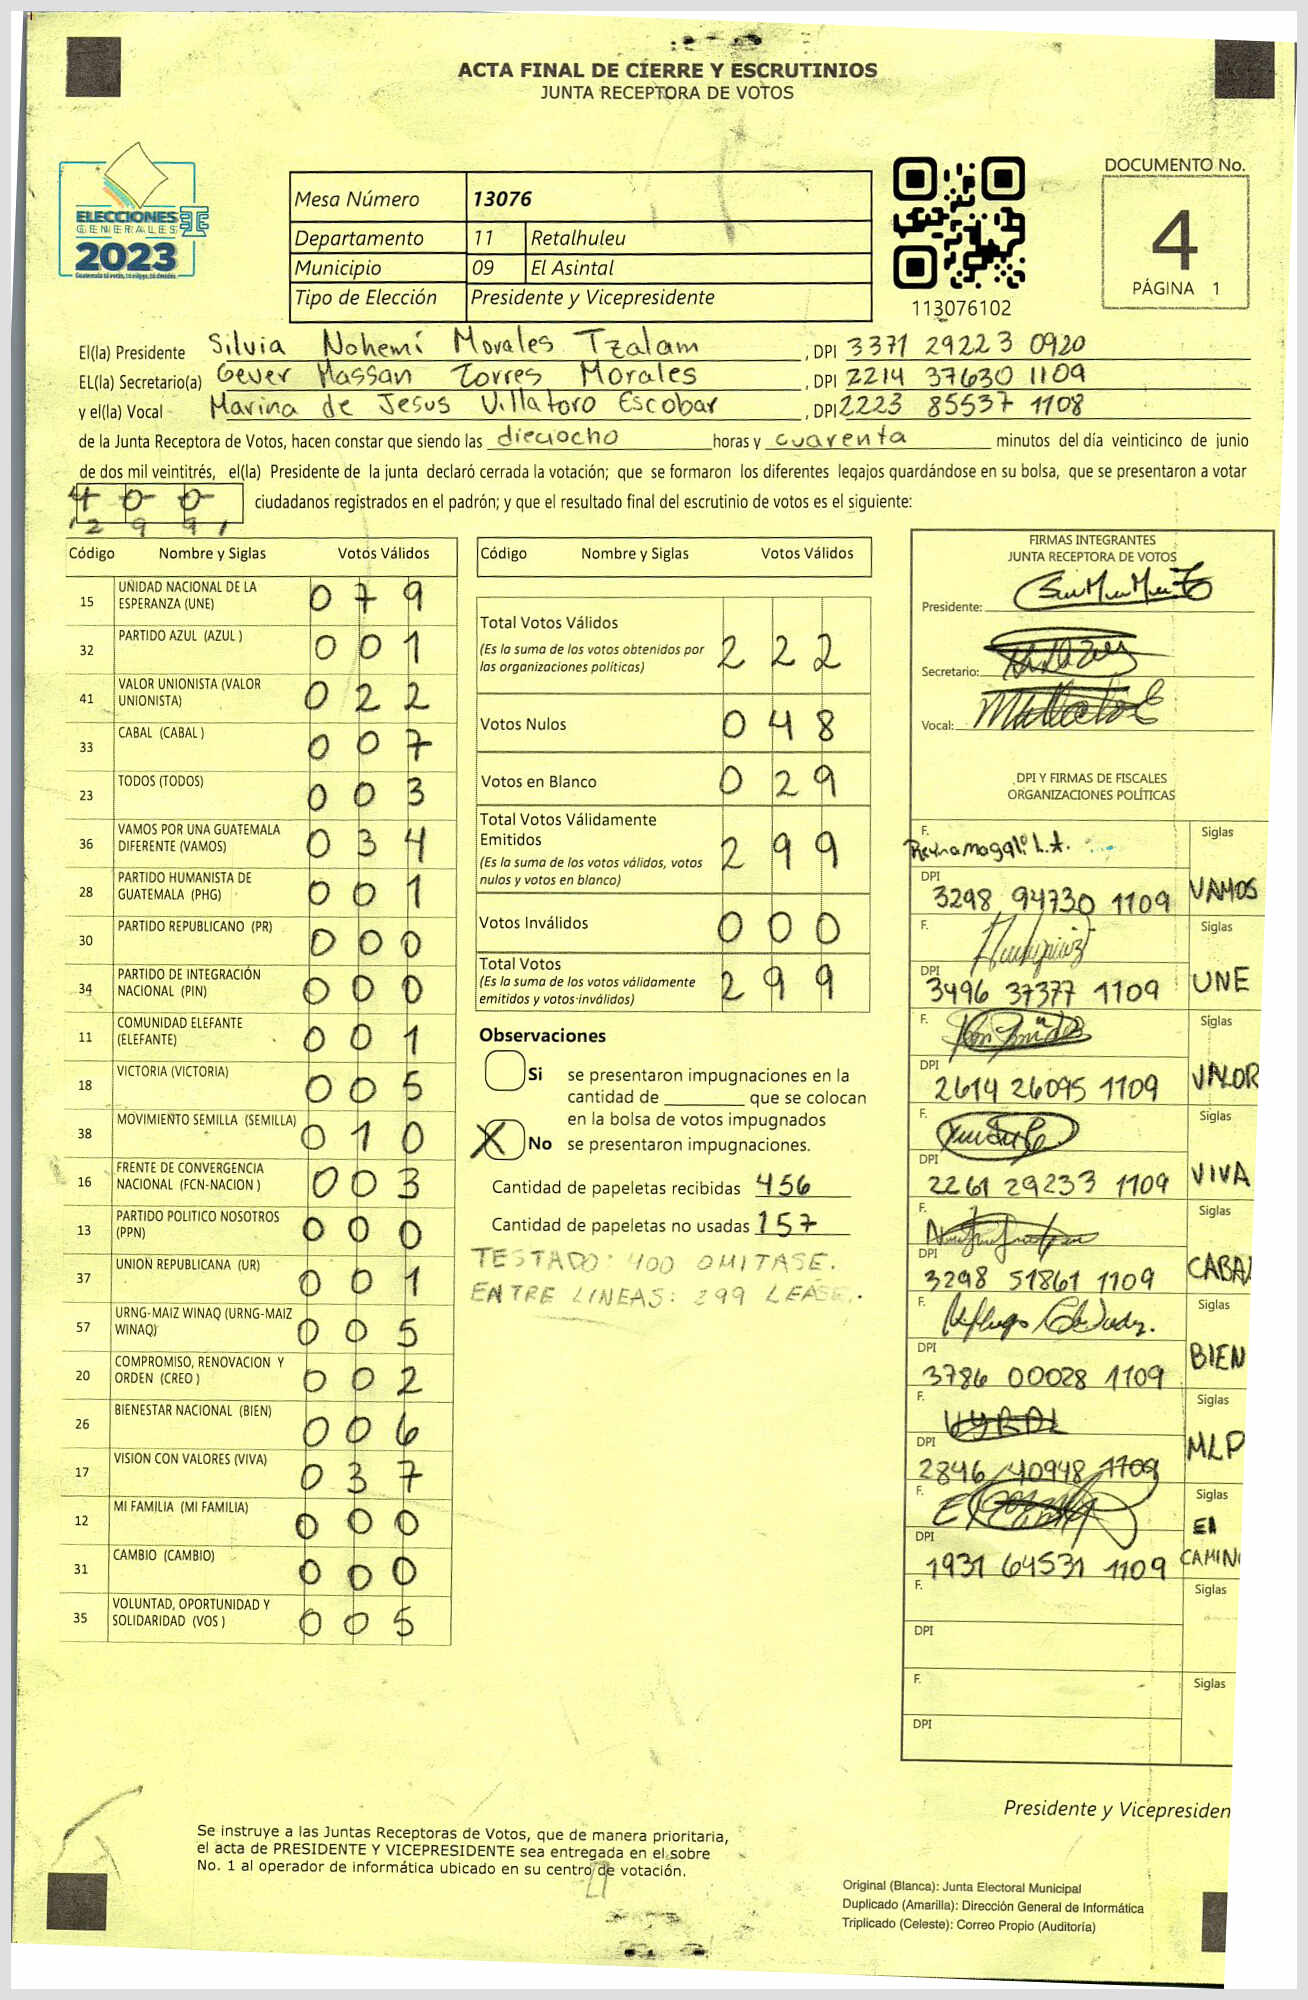 ACTA FINAL DE CIERRE Y ESCRUTINIOS
JUNTA RECEPTORA DE VOTOS
ELECCIONES
GENERALES
2023
Mesa Número 13076
Departamento 11 Retalhuleu
Municipio 09 El Asintal
Tipo de Elección Presidente y Vicepresidente
113076102
DOCUMENTO No.
4
PÁGINA 1
El(la) Presidente Silvia Nohemí Morales Tzalam , DPI 3371 29223 0920
EL(la) Secretario(a) Gever Massan Torres Morales , DPI 2214 37630 1109
y el(la) Vocal Marina de Jesus Villatoro Escobar , DPI 2223 85537 1108
de la Junta Receptora de Votos, hacen constar que siendo las dieciocho horas y cuarenta minutos del día veinticinco de junio
de dos mil veintitrés, el(la) Presidente de la junta declaró cerrada la votación; que se formaron los diferentes legajos guardándose en su bolsa, que se presentaron a votar
400 ciudadanos registrados en el padrón; y que el resultado final del escrutinio de votos es el siguiente:
299
Código Nombre y Siglas Votos Válidos
15 UNIDAD NACIONAL DE LA ESPERANZA (UNE) 079
32 PARTIDO AZUL (AZUL ) 001
41 VALOR UNIONISTA (VALOR UNIONISTA) 022
33 CABAL (CABAL ) 007
23 TODOS (TODOS) 003
36 VAMOS POR UNA GUATEMALA DIFERENTE (VAMOS) 034
28 PARTIDO HUMANISTA DE GUATEMALA (PHG) 001
30 PARTIDO REPUBLICANO (PR) 000
34 PARTIDO DE INTEGRACIÓN NACIONAL (PIN) 000
11 COMUNIDAD ELEFANTE (ELEFANTE) 001
18 VICTORIA (VICTORIA) 005
38 MOVIMIENTO SEMILLA (SEMILLA) 010
16 FRENTE DE CONVERGENCIA NACIONAL (FCN-NACION ) 003
13 PARTIDO POLITICO NOSOTROS (PPN) 000
37 UNION REPUBLICANA (UR) 001
57 URNG-MAIZ WINAQ (URNG-MAIZ WINAQ) 005
20 COMPROMISO, RENOVACION Y ORDEN (CREO ) 002
26 BIENESTAR NACIONAL (BIEN) 006
17 VISION CON VALORES (VIVA) 037
12 MI FAMILIA (MI FAMILIA) 000
31 CAMBIO (CAMBIO) 000
35 VOLUNTAD, OPORTUNIDAD Y SOLIDARIDAD (VOS ) 005
Código Nombre y Siglas Votos Válidos
Total Votos Válidos 222
(Es la suma de los votos obtenidos por
las organizaciones políticas)
Votos Nulos 048
Votos en Blanco 029
Total Votos Válidamente
Emitidos 299
(Es la suma de los votos válidos, votos
nulos y votos en blanco)
Votos Inválidos 000
Total Votos 299
(Es la suma de los votos válidamente
emitidos y votos inválidos)
Observaciones
Si se presentaron impugnaciones en la
cantidad de ________ que se colocan
en la bolsa de votos impugnados
X No se presentaron impugnaciones.
Cantidad de papeletas recibidas 456
Cantidad de papeletas no usadas 157
TESTADO: 400 OMITASE.
ENTRE LINEAS: 299 LEASE.
FIRMAS INTEGRANTES
JUNTA RECEPTORA DE VOTOS
Presidente:
Secretario:
Vocal:
DPI Y FIRMAS DE FISCALES
ORGANIZACIONES POLÍTICAS
F. Reyna Magali L.A. Siglas
DPI 3298 94730 1109 VAMOS
F. Siglas
DPI 3496 37377 1109 UNE
F. Siglas
DPI 2614 26095 1109 VALOR
F. Siglas
DPI 2261 29233 1109 VIVA
F. Siglas
DPI 3298 51861 1109 CABAL
F. Siglas
DPI 3786 00028 1109 BIEN
F. Siglas
DPI 2846 40948 1709 MLP
F. Siglas
DPI 1931 64531 1109 El CAMIN
F. Siglas
DPI
F. Siglas
DPI
Presidente y Vicepresiden
Se instruye a las Juntas Receptoras de Votos, que de manera prioritaria,
el acta de PRESIDENTE Y VICEPRESIDENTE sea entregada en el sobre
No. 1 al operador de informática ubicado en su centro de votación.
Original (Blanca): Junta Electoral Municipal
Duplicado (Amarilla): Dirección General de Informática
Triplicado (Celeste): Correo Propio (Auditoría)